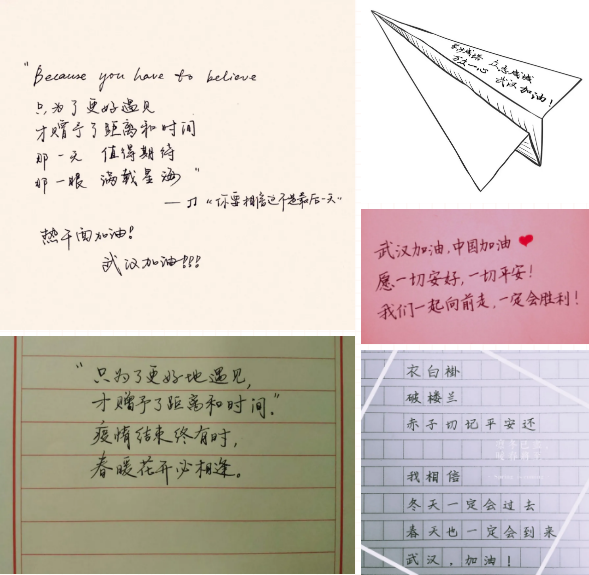 "Because you have to believe
只为了更好遇见
才赠予了距离和时间
那一天 值得期待
那一眼 满载星海"
—♫《你要相信这不是最后一天》
热干面加油!
武汉加油!!!
众志成城
万众一心 武汉加油!
武汉加油,中国加油❤
愿一切安好,一切平安!
我们一起向前走,一定会胜利!
"只为了更好地遇见,
才赠予了距离和时间."
疫情结束终有时,
春暖花开必相逢。
衣白褂
破楼兰
赤子切记平安还
我相信
冬天一定会过去
春天也一定会到来
武汉,加油!